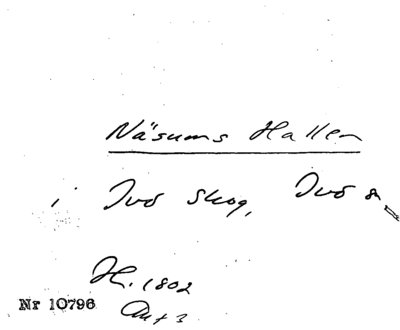 Näsums Hallen
i Ivö Skog, Ivö
H. 1802
Nr 10796